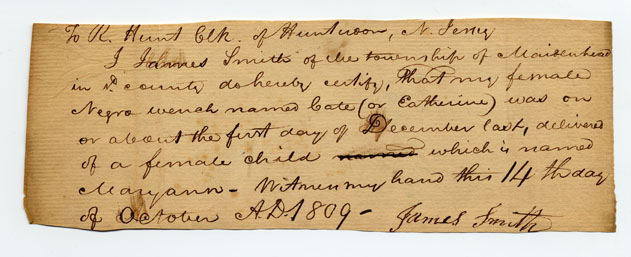 To R. Hunt Clk. of Hunterdon, N. Jersey
I James Smith of the township of Maidenhead
in sd. county do hereby certify, That my female
Negro wench named Cate (or Catherine) was on
or about the first day of December last, delivered
of a female child named which is named
Maryann - Witness my hand this 14th day
of October A.D. 1809 - James Smith